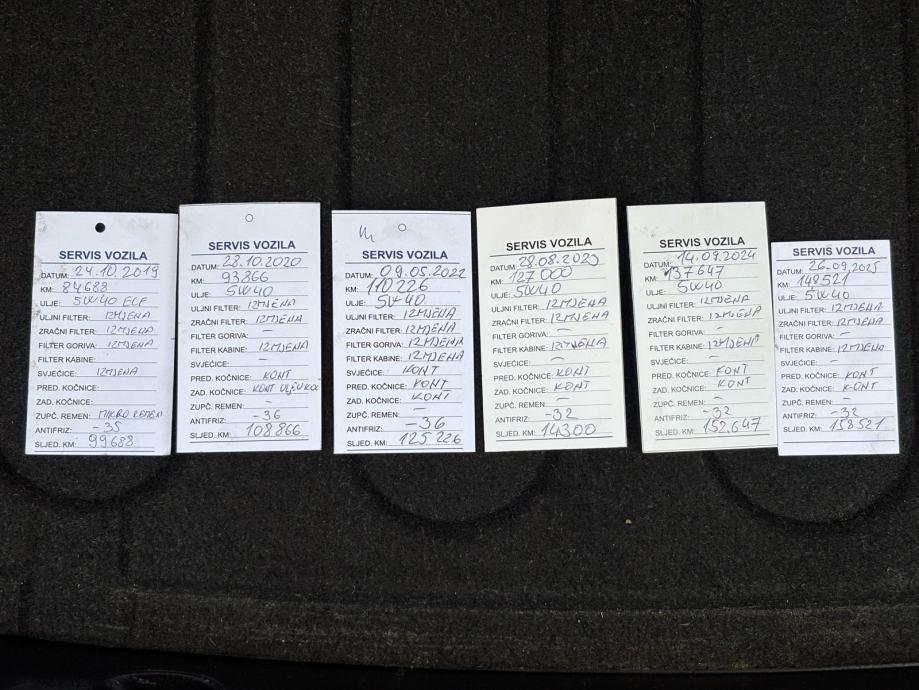 SERVIS VOZILA
DATUM: 24.10.2019
KM: 84688
ULJE: 5W40 ELF
ULJNI FILTER: IZMJENA
ZRAČNI FILTER: IZMJENA
FILTER GORIVA: IZMJENA
FILTER KABINE:
SVJEĆICE: IZMJENA
PRED. KOČNICE:
ZAD. KOČNICE:
ZUPČ. REMEN: MIKRO REMEN
ANTIFRIZ: -35
SLJED. KM: 99688
SERVIS VOZILA
DATUM: 28.10.2020
KM: 93866
ULJE: 5W40
ULJNI FILTER: IZMJENA
ZRAČNI FILTER: IZMJENA
FILTER GORIVA: –
FILTER KABINE: IZMJENA
SVJEĆICE: –
PRED. KOČNICE: KONT
ZAD. KOČNICE: KONT
ZUPČ. REMEN: –
ANTIFRIZ: -36
SLJED. KM: 108866
SERVIS VOZILA
DATUM: 09.05.2022
KM: 110226
ULJE: 5W40
ULJNI FILTER: IZMJENA
ZRAČNI FILTER: IZMJENA
FILTER GORIVA: IZMJENA
FILTER KABINE: IZMJENA
SVJEĆICE: KONT
PRED. KOČNICE: KONT
ZAD. KOČNICE: KONT
ZUPČ. REMEN: –
ANTIFRIZ: -36
SLJED. KM: 125226
SERVIS VOZILA
DATUM: 28.08.2023
KM: 127000
ULJE: 5W40
ULJNI FILTER: IZMJENA
ZRAČNI FILTER: IZMJENA
FILTER GORIVA: –
FILTER KABINE: IZMJENA
SVJEĆICE: –
PRED. KOČNICE: KONT
ZAD. KOČNICE: KONT
ZUPČ. REMEN: –
ANTIFRIZ: -32
SLJED. KM: 14300
SERVIS VOZILA
DATUM: 14.09.2024
KM: 137647
ULJE: 5W40
ULJNI FILTER: IZMJENA
ZRAČNI FILTER: IZMJENA
FILTER GORIVA: –
FILTER KABINE: IZMJENA
SVJEĆICE: –
PRED. KOČNICE: KONT
ZAD. KOČNICE: KONT
ZUPČ. REMEN: –
ANTIFRIZ: -32
SLJED. KM: 152.647
SERVIS VOZILA
DATUM: 26.09.2025
KM: 148521
ULJE: 5W40
ULJNI FILTER: IZMJENA
ZRAČNI FILTER: IZMJENA
FILTER GORIVA: –
FILTER KABINE: IZMJENA
SVJEĆICE: –
PRED. KOČNICE: KONT
ZAD. KOČNICE: KONT
ZUPČ. REMEN: –
ANTIFRIZ: -32
SLJED. KM: 158521